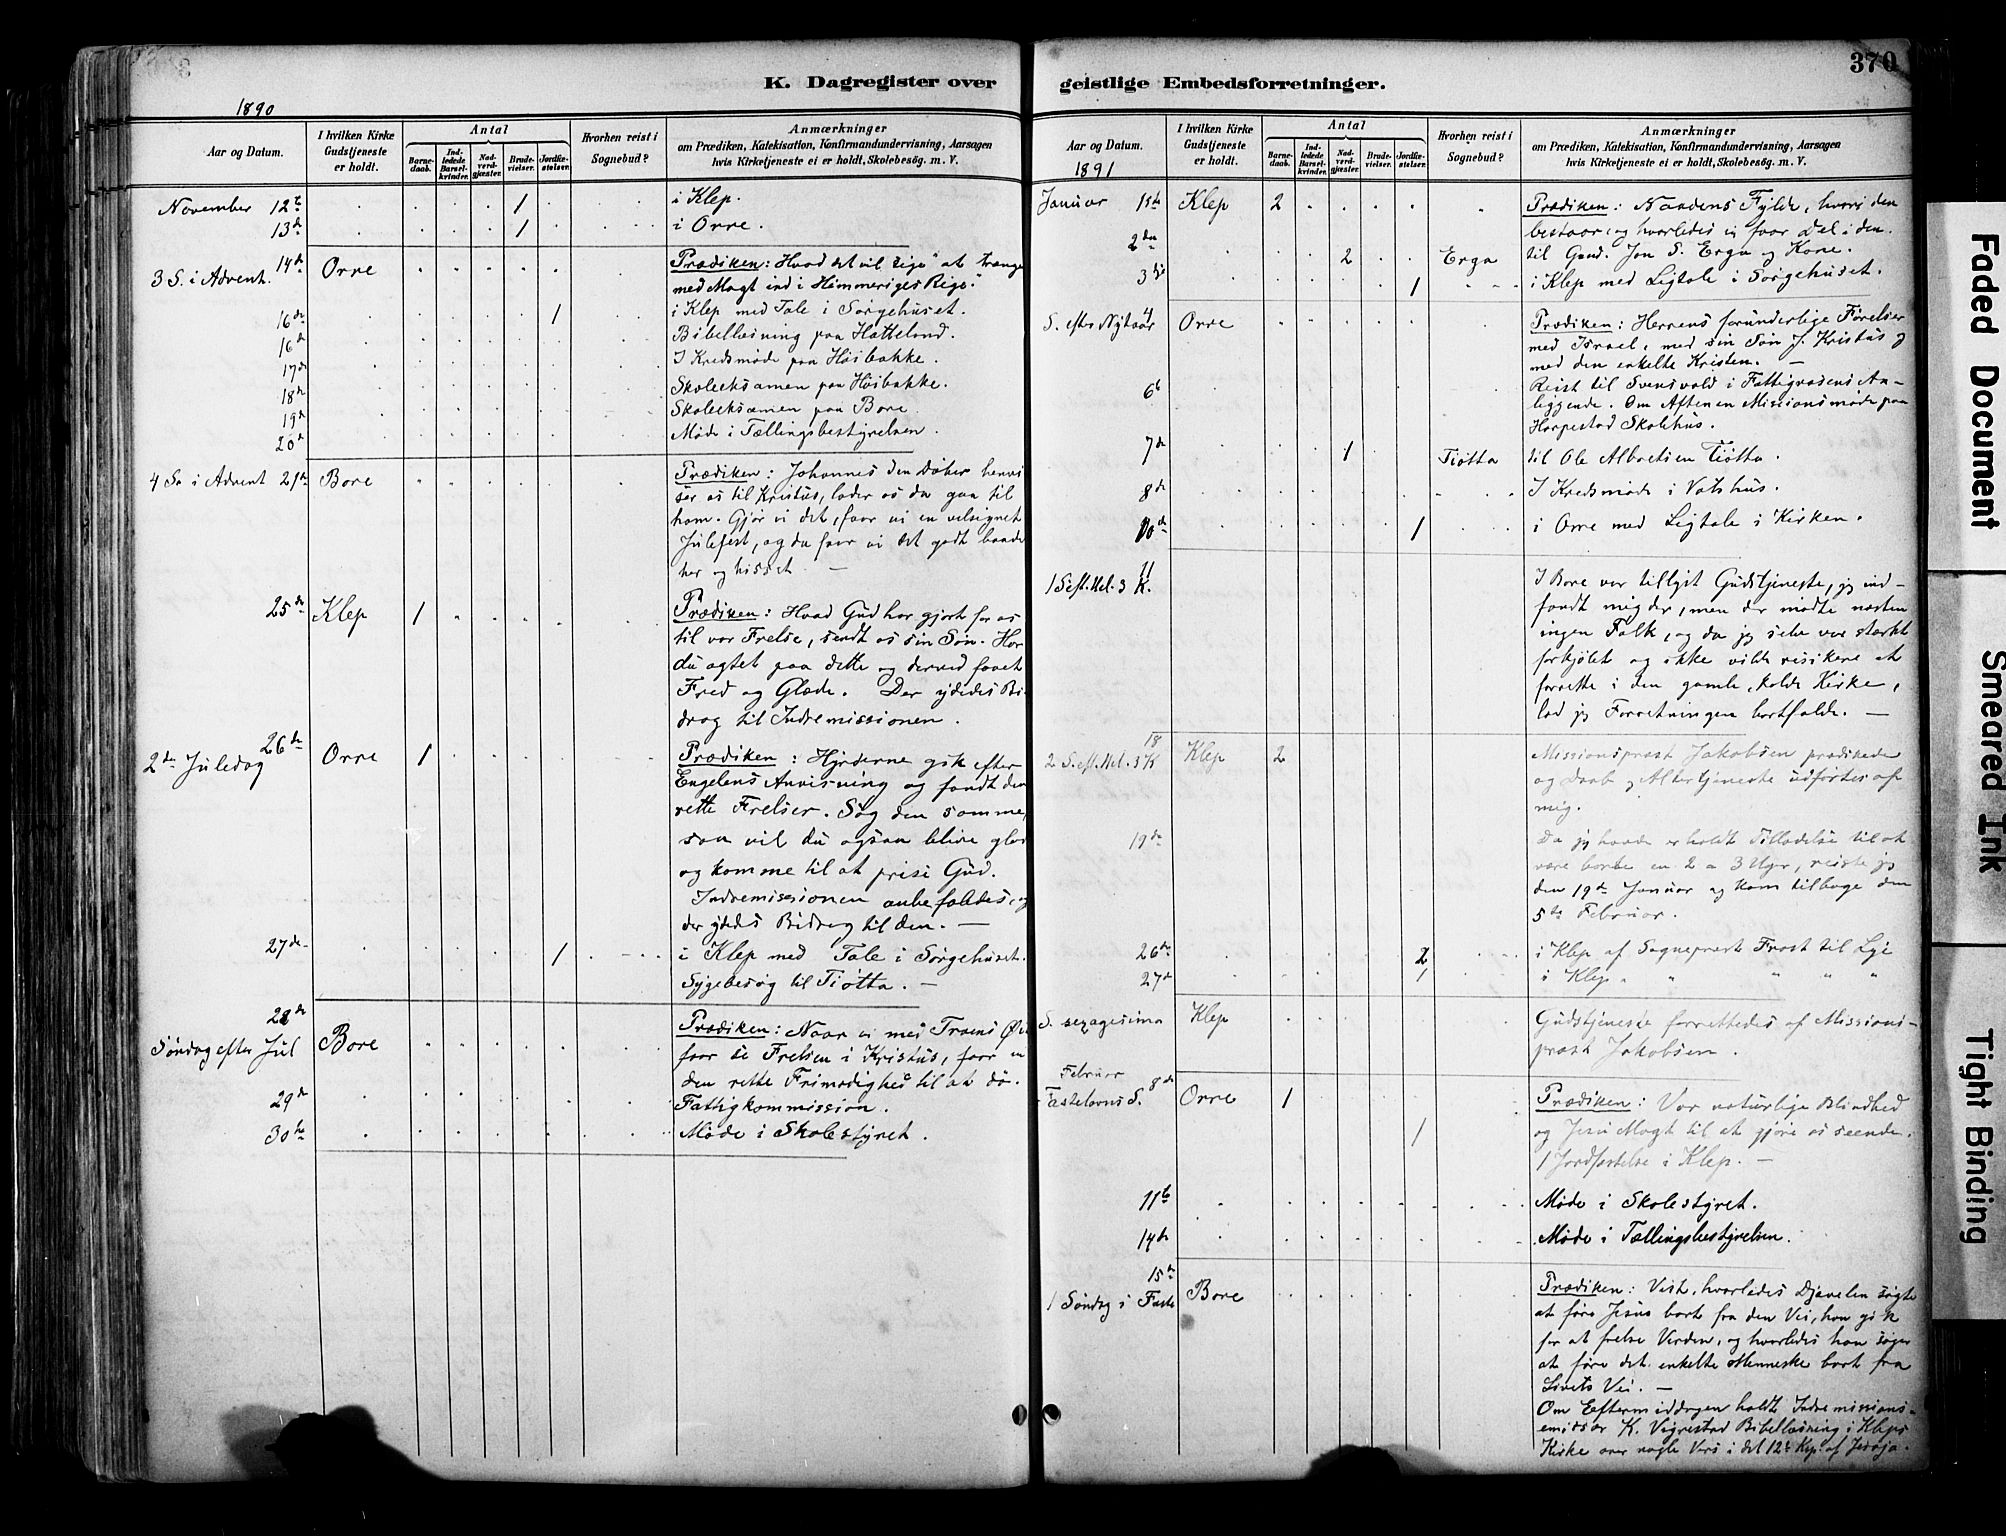 370
K. Dagregister over
geistlige Embedsforretninger.
1890
Aar og Datum.
I hvilken Kirke Gudstjeneste er holdt.
Antal
Barnedaab.
Indledede Barselkvinder.
Nadverdgjæster.
Brudevielser.
Jordfæstelser.
Hvorhen reist i Sognebud?
Anmærkninger
om Prædiken, Katekisation, Konfirmandundervisning, Aarsagen
hvis Kirketjeneste ei er holdt, Skolebesøg. m. V.
November 12te 1 i Klep.
13de 1 i Orre.
3 S. i Advent. 14de Orre Prædiken: Hvad det vil sige "at trænge
med Magt ind i Himmeriges Rige."
16de 1 i Klep med Tale i Sørgehuset.
16de Bibellæsning paa Hatteland.
17de I Kredsmøde paa Høibakke.
18de Skoleeksamen paa Høibakke.
19de Skoleeksamen paa Bore.
20de Møde i Tællingsbestyrelsen.
4 S. i Advent 21de Bore Prædiken: Johannes den Døber henvi
ser os til Kristus, lader os da gaa til
ham. Gjør vi det, faar vi en velsignet
Julefest, og da faar vi det godt baade
her og hisset. —
25de Klep 1 Prædiken: Hvad Gud har gjort for os
til vor Frelse, sendt os sin Søn. Har
du agtet paa dette og derved faaet
Fred og Glæde. Der ydedes Bi
drag til Indremissionen.
2den Juledag 26de Orre 1 Prædiken: Hyrderne gik efter
Engelens Anvisning og fandt den
rette Frelser. Søg den samme,
saa vil du ogsaa blive glad
og komme til at prise Gud.
Indremissionen anbefaldes, og
der ydedes Bidrag til den. —
27de 1 i Klep med Tale i Sørgehuset.
Sygebesøg til Tiøtta. —
28de
Søndag efter Jul Bore Prædiken: Naar vi med Troens Øie
faar se Frelsen i Kristus, faar vi
den rette Frimodighed til at dø.
29de Fattigkommission.
30te Møde i Skolestyret.
Aar og Datum.
1891
I hvilken Kirke Gudstjeneste er holdt.
Antal
Barnedaab.
Indledede Barselkvinder.
Nadverdgjæster.
Brudevielser.
Jordfæstelser.
Hvorhen reist i Sognebud?
Anmærkninger
om Prædiken, Katekisation, Konfirmandundervisning, Aarsagen
hvis Kirketjeneste ei er holdt, Skolebesøg. m. V.
Januar 1ste Klep 2 Prædiken: Naadens Fylde, hvori den
bestaar, og hvorledes vi faar Del i den.
2den 2 Erga til Gaad. Jon S. Erga og Kone.
3die 1 i Klep med Ligtale i Sørgehuset.
S. efter Nytaar 4 Orre Prædiken: Herrens forunderlige Førelser
med Israel, med sin Søn J. Kristus og
med den enkelte Kristen. —
6te Reist til Svensvold i Fattigvæsens An-
liggende. Om Aftenen Missionsmøde paa
Harpestad Skolehus.
7de 1 Tiøtta til Ole Albretsen Tiøtta.
8de I Kredsmøde i Vatshus.
10de 1 i Orre med Ligtale i Kirken.
1 S. eft. Hel. 3 K. 11 I Bore var tillyst Gudstjeneste, jeg ind-
fandt mig der, men der mødte næsten
ingen Folk, og da jeg selv var stærkt
forkjølet og ikke vilde risikere at
forrette i den gamle, kolde Kirke,
lod jeg Forretningen bortfalde. —
2 S. eft. Hel. 3 K 18 Klep 2 Missionsprest Jakobsen prædikede
og Daab og Altertjeneste udførtes af
mig.
19de Da jeg havde erholdt Tilladelse til at
være borte en 2 a 3 Uger, reiste jeg
den 19de Januar og kom tilbage den
5te Februar.
26de 2 i Klep af Sogneprest Frost til Lye
27de 1 i Klep " " " "
S. sexagesima Klep Gudstjeneste forrettedes af Missions-
prest Jakobsen.
Februar
Fastelavns S. 8de Orre 1 Prædiken: Vor naturlige Blindhed
og Jesu Magt til at gjøre os seende.
1 1 Jordfæstelse i Klep. —
11te Møde i Skolestyret.
14de Møde i Tællingsbestyrelsen.
15de
1 Søndag i Faste Bore Prædiken: Vist, hvorledes Djævelen søgte
at føre Jesus bort fra den Vei, han gik
for at frelse Verden, og hvorledes han søger
at føre det enkelte Menneske bort fra
Livets Vei. —
Om Eftermiddagen holdt Indremissions-
emissær K. Vigrestad Bibellæsning i Kleps
Kirke over nogle Vers i det 12te Kap. af Jesaja.
Faded Document
Smeared Ink
Tight Binding